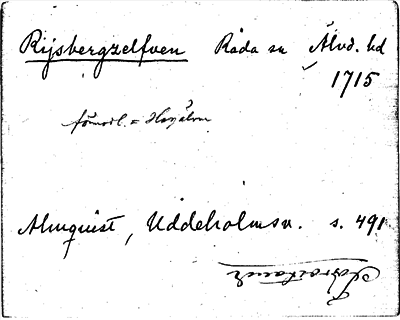 Rijsbergzelfven Råda sn Älvd. hd
1715
förmodl. = Havälven
Almquist, Uddeholmsv. s. 491